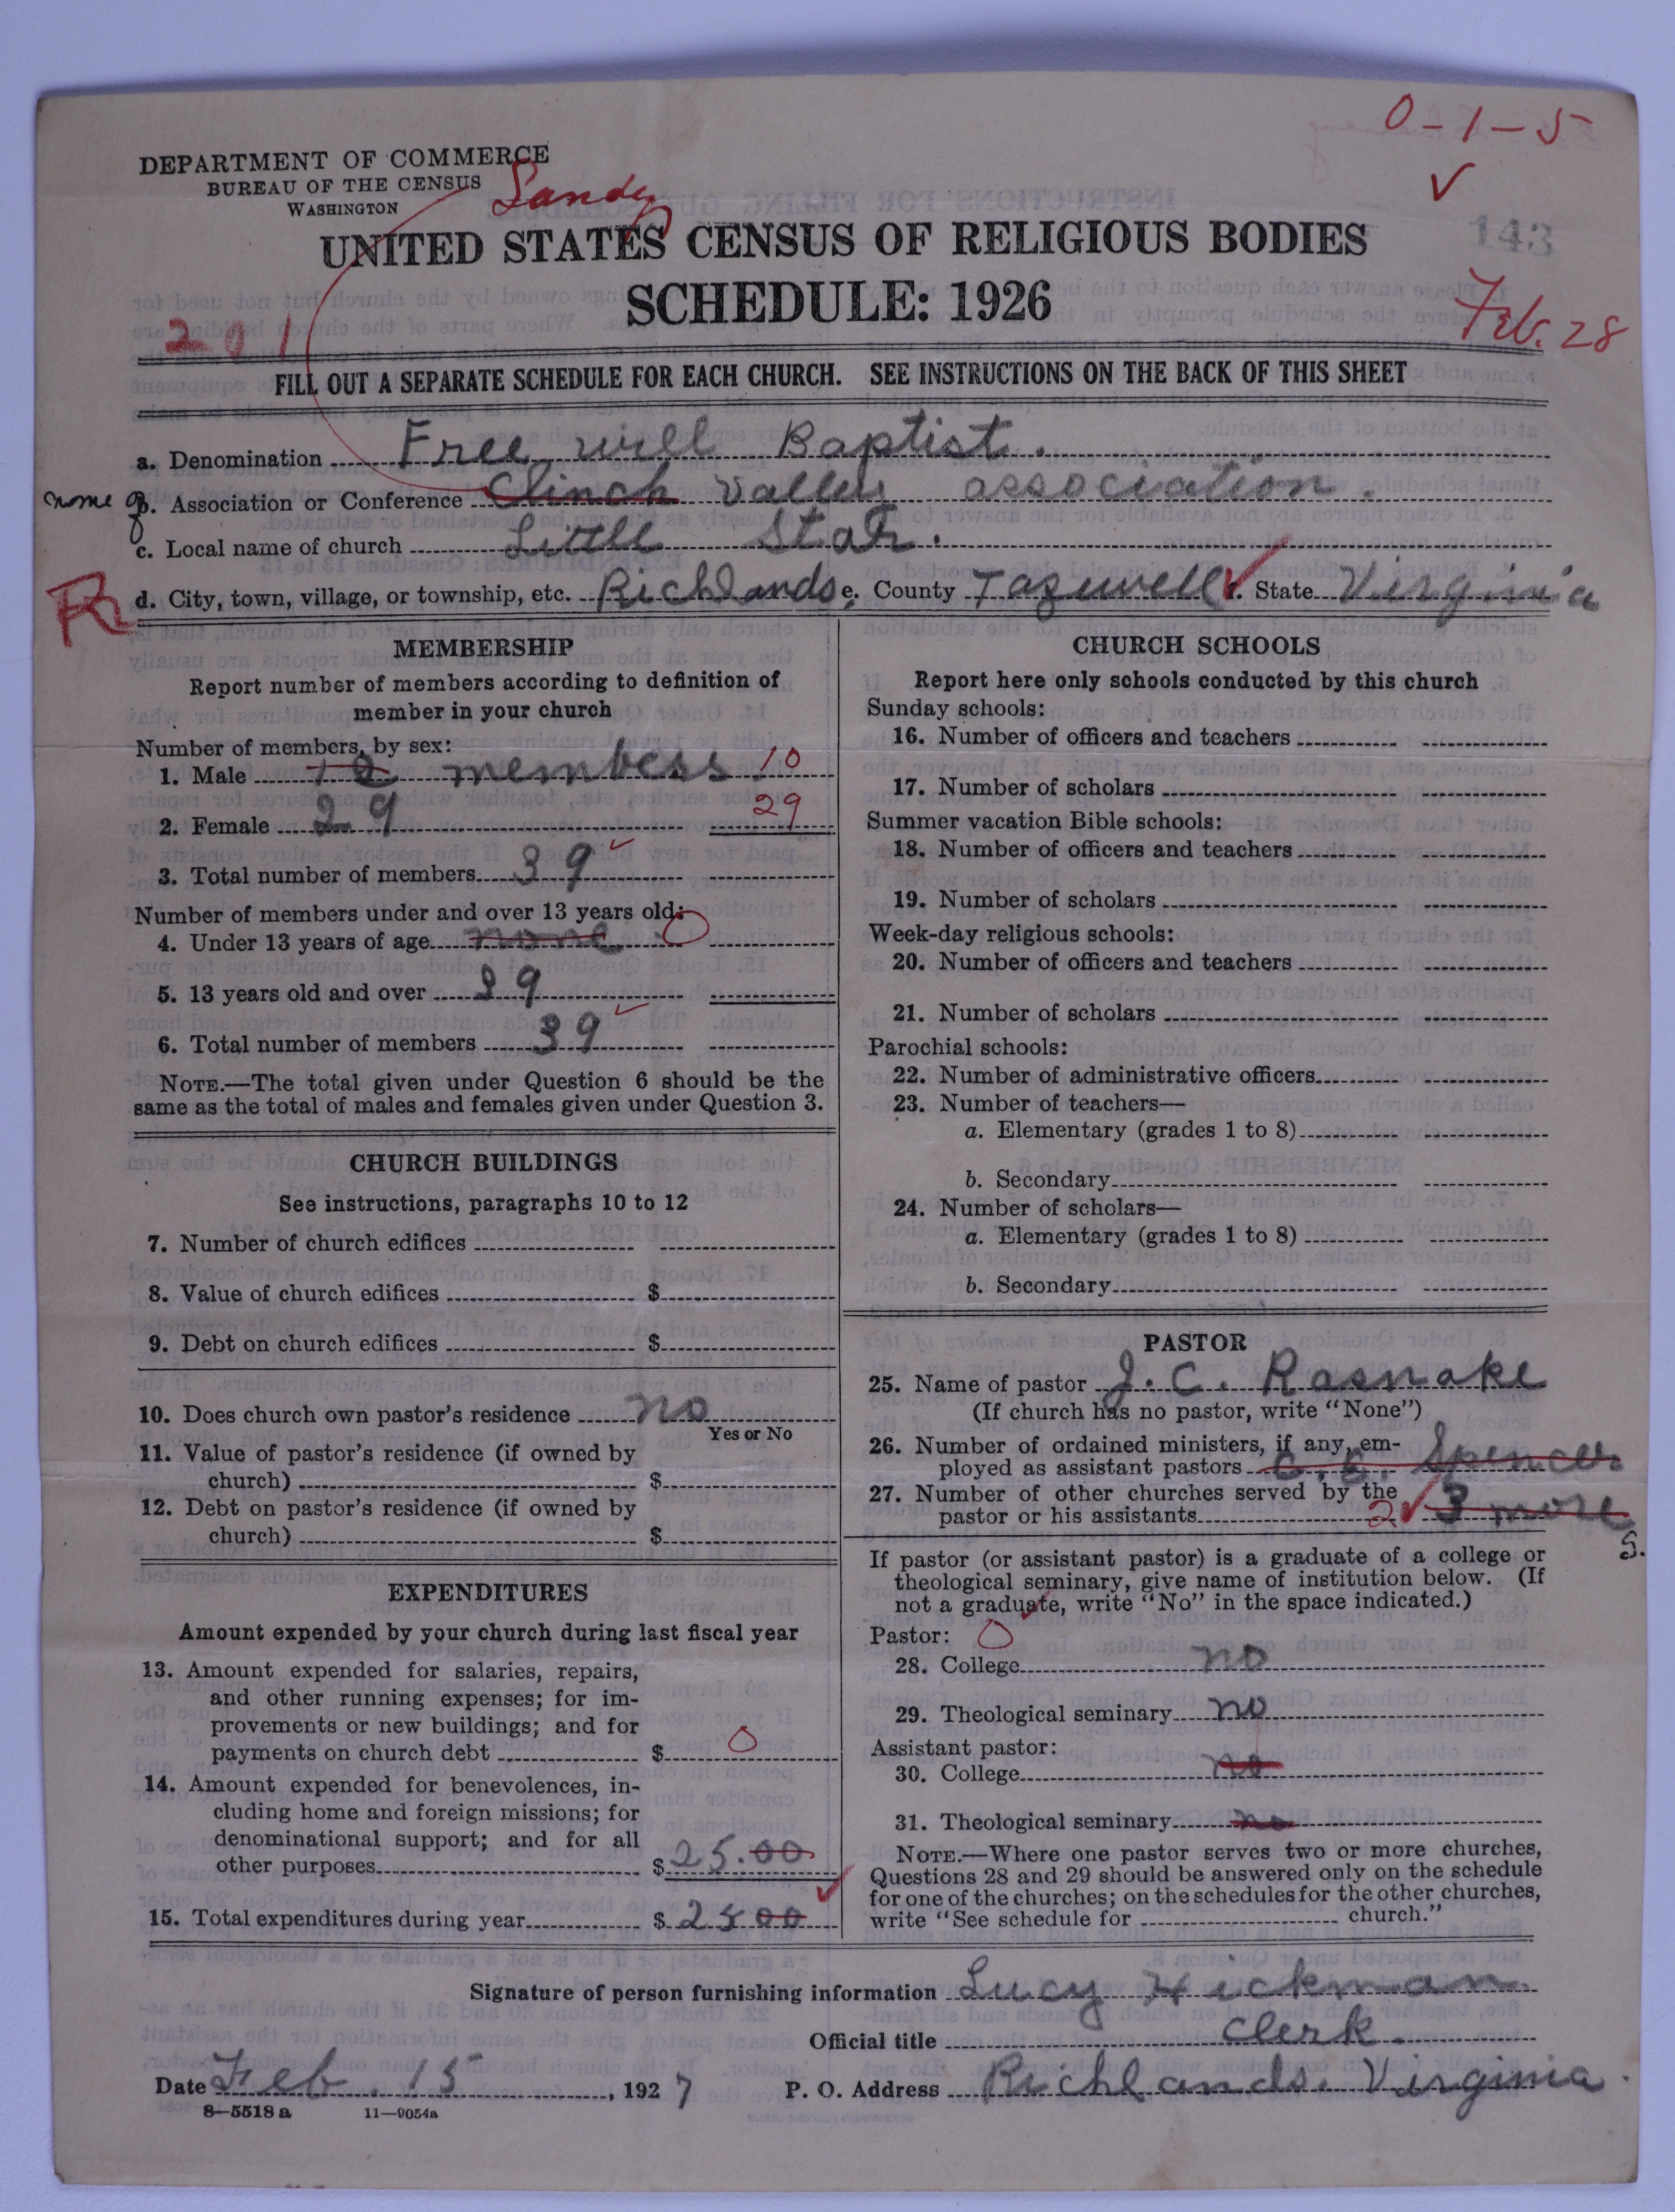 0-1-5
DEPARTMENT OF COMMERCE
BUREAU OF THE CENSUS
WASHINGTON
Sandy
143
UNITED STATES CENSUS OF RELIGIOUS BODIES
SCHEDULE: 1926
Feb. 28
201
FILL OUT A SEPARATE SCHEDULE FOR EACH CHURCH. SEE INSTRUCTIONS ON THE BACK OF THIS SHEET
a. Denomination Free will Baptist.
name of b. Association or Conference Clinch Valley association.
c. Local name of church Little Star.
R d. City, town, village, or township, etc. Richlands e. County Tazewell f. State Virginia
MEMBERSHIP
Report number of members according to definition of
member in your church
Number of members, by sex:
1. Male members 10
2. Female 29 29
3. Total number of members 39
Number of members under and over 13 years old:
4. Under 13 years of age none 0
5. 13 years old and over 39
6. Total number of members 39
NOTE.—The total given under Question 6 should be the
same as the total of males and females given under Question 3.
CHURCH BUILDINGS
See instructions, paragraphs 10 to 12
7. Number of church edifices
8. Value of church edifices $
9. Debt on church edifices $
10. Does church own pastor's residence no
Yes or No
11. Value of pastor's residence (if owned by
church) $
12. Debt on pastor's residence (if owned by
church) $
EXPENDITURES
Amount expended by your church during last fiscal year
13. Amount expended for salaries, repairs,
and other running expenses; for im-
provements or new buildings; and for
payments on church debt $ 0
14. Amount expended for benevolences, in-
cluding home and foreign missions; for
denominational support; and for all
other purposes $ 25.00
15. Total expenditures during year $ 25 00
CHURCH SCHOOLS
Report here only schools conducted by this church
Sunday schools:
16. Number of officers and teachers
17. Number of scholars
Summer vacation Bible schools:
18. Number of officers and teachers
19. Number of scholars
Week-day religious schools:
20. Number of officers and teachers
21. Number of scholars
Parochial schools:
22. Number of administrative officers
23. Number of teachers—
a. Elementary (grades 1 to 8)
b. Secondary
24. Number of scholars—
a. Elementary (grades 1 to 8)
b. Secondary
PASTOR
25. Name of pastor J. C. Rasnake
(If church has no pastor, write "None")
26. Number of ordained ministers, if any, em-
ployed as assistant pastors C. E. Spencer
27. Number of other churches served by the
pastor or his assistants 2 3 more
S.
If pastor (or assistant pastor) is a graduate of a college or
theological seminary, give name of institution below. (If
not a graduate, write "No" in the space indicated.)
Pastor: 0
28. College no
29. Theological seminary no
Assistant pastor:
30. College no
31. Theological seminary no
NOTE.—Where one pastor serves two or more churches,
Questions 28 and 29 should be answered only on the schedule
for one of the churches; on the schedules for the other churches,
write "See schedule for church."
Signature of person furnishing information Lucy Hickman
Official title clerk.
Date Feb. 15, 1927 P. O. Address Richlands. Virginia.
8—5518 a 11—9054a